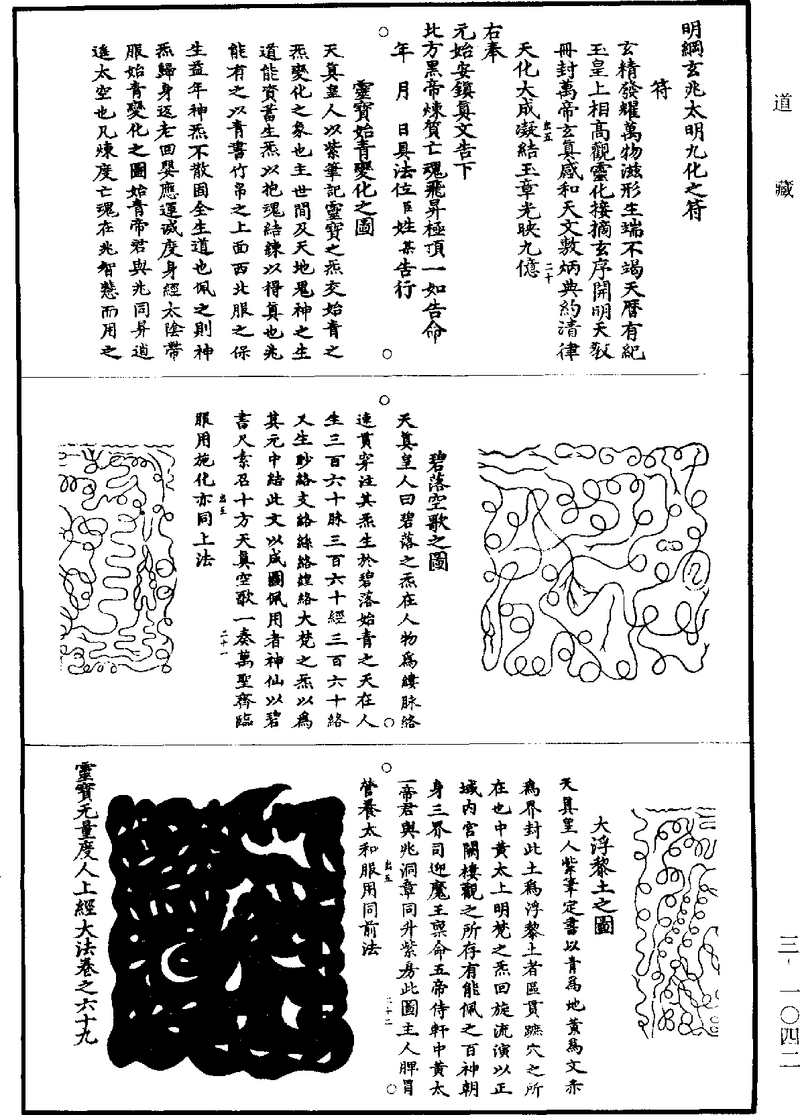 道藏
明綱玄兆太明九化之符
符
玄精發耀萬物滋形生端不竭天曆有紀
玉皇上相高觀靈化接摘玄序開明天敎
冊封萬帝玄真感和天文敷炳典約清律
天化大成凝結玉章光映九億
出五
二十
右奉
元始安鎮真文告下
北方黑帝煉質亡魂飛昇極頂一如告命
年月日具法位臣姓某告行
靈寶始青變化之圖
天真皇人以紫筆記靈寶之炁交始青之
炁變化之象也主世間及天地鬼神之生
道能資蓄生炁以抱魂結鍊以得真也兆
能有之以青書竹帛之上面西北服之保
生益年神炁不散固全生道也佩之則神
炁歸身返老回嬰應運滅度身經太陰帶
服始青變化之圖始青帝君與兆同昇逍
遙太空也凡煉度亡魂在兆智慧而用之
碧落空歌之圖
天真皇人曰碧落之炁在人物爲縷脉絡
連貫穿注其炁生於碧落始青之天在人
生三百六十脉三百六十經三百六十絡
又生眇絡支絡絲絡煌絡大梵之炁以爲
其元中結此文以成圖佩用者神仙以碧
書尺素召十方天真空歌一奏萬聖齊臨
服用施化亦同上法
出五
二十一
大浮黎土之圖
天真皇人紫筆定書以青爲地黃爲文赤
爲界封此土爲浮黎土者區貫蹠穴之所
在也中黃太上明梵之炁回旋流演以正
域內宮闕樓觀之所存有能佩之百神朝
身三界司迎魔王稟命五帝侍軒中黃太
一帝君與兆洞章同升紫房此圖主人脾胃
營養太和服用同前法
出五
二十二
靈寶无量度人上經大法卷之六十九
三-一〇四二